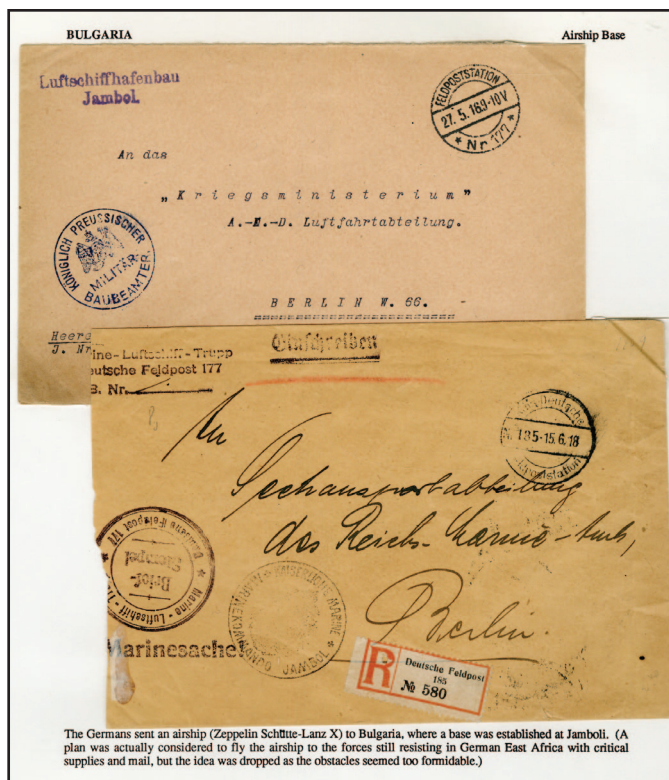 BULGARIA Airship Base
Luftschiffhafenbau
Jambol.
FELDPOSTSTATION
27. 5. 16.9-10V
* Nr 177 *
An das
„Kriegsministerium"
A.-M.-D. Luftfahrtabteilung.
KÖNIGLICH PREUSSISCHER
MILITÄR-
BAUBEAMTER.
BERLIN W. 66.
J. Nr
Einschreiben
ine-Luftschiff-Trupp
eutsche Feldpost 177
B. Nr.
Deutsche
185-15.6.18
poststation
An
Seetransportabteilung
des Reichs-Marine-Amts,
Berlin.
* Marine-Luftschiff-Tr
Deutsche Feldpost 177
Brief-
Stempel
KAISERLICHE MARINE
MARINEKOMMANDO JAMBOL
Marinesache!
R
Deutsche Feldpost
185
№ 580
The Germans sent an airship (Zeppelin Schütte-Lanz X) to Bulgaria, where a base was established at Jamboli. (A
plan was actually considered to fly the airship to the forces still resisting in German East Africa with critical
supplies and mail, but the idea was dropped as the obstacles seemed too formidable.)